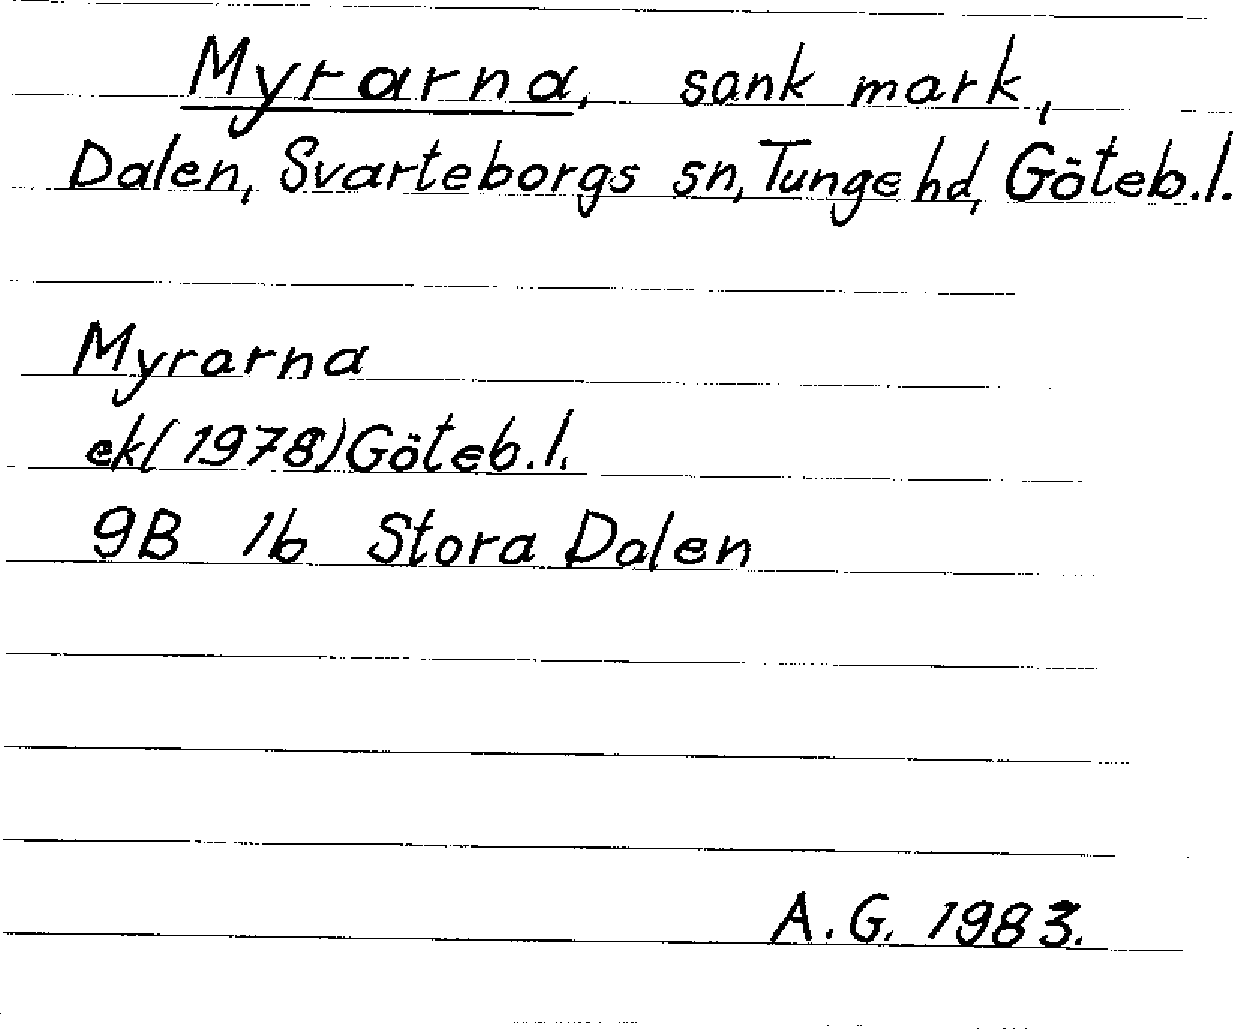 Myrarna, sank mark,
Dalen, Svarteborgs sn, Tunge hd, Göteb.l.
Myrarna
ek(1978)Göteb.l.
9B 1b Stora Dalen
A.G. 1983.